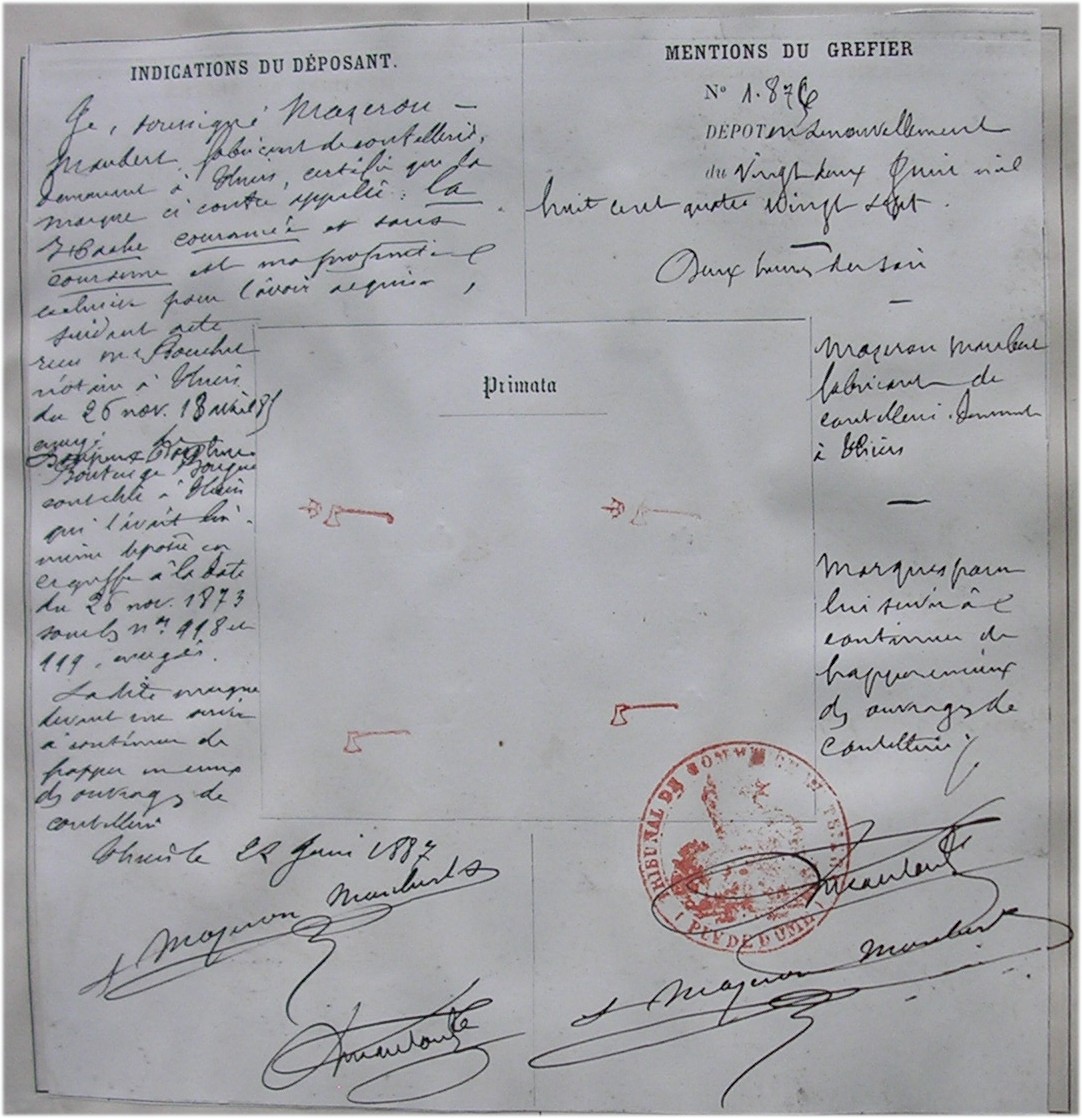 INDICATIONS DU DÉPOSANT.
Je, soussigné Mazeron –
Maubert fabricant de coutellerie,
demeurant à Thiers, certifie que la
marque ci contre appelée : la
Hache couronnée et sans
couronne est ma propriété
exclusive pour l'avoir acquise,
suivant acte
reçu Me
notaire à Thiers
du 26 nov. 18
à Thiers
qui l'avait lui-
même déposée au
greffe à la date
du 26 nov. 1873
sous les nos 918 et
119
La dite marque
devant me servir
à continuer de
frapper
des ouvrages de
coutellerie
Thiers le 22 Juin 1887
Mazeron Maubert
MENTIONS DU GREFIER
No 1.876
DÉPOT en renouvellement
du Vingt deux Juin mil
huit cent quatre vingt sept.
Deux heures du soir
Primata
Mazeron Maubert
fabricant de
coutellerie demeurant
à Thiers
Marques pour
lui servir à
continuer de
frapper
des ouvrages de
coutellerie
TRIBUNAL DE COMMERCE
PUY DE DOME
Mazeron Maubert